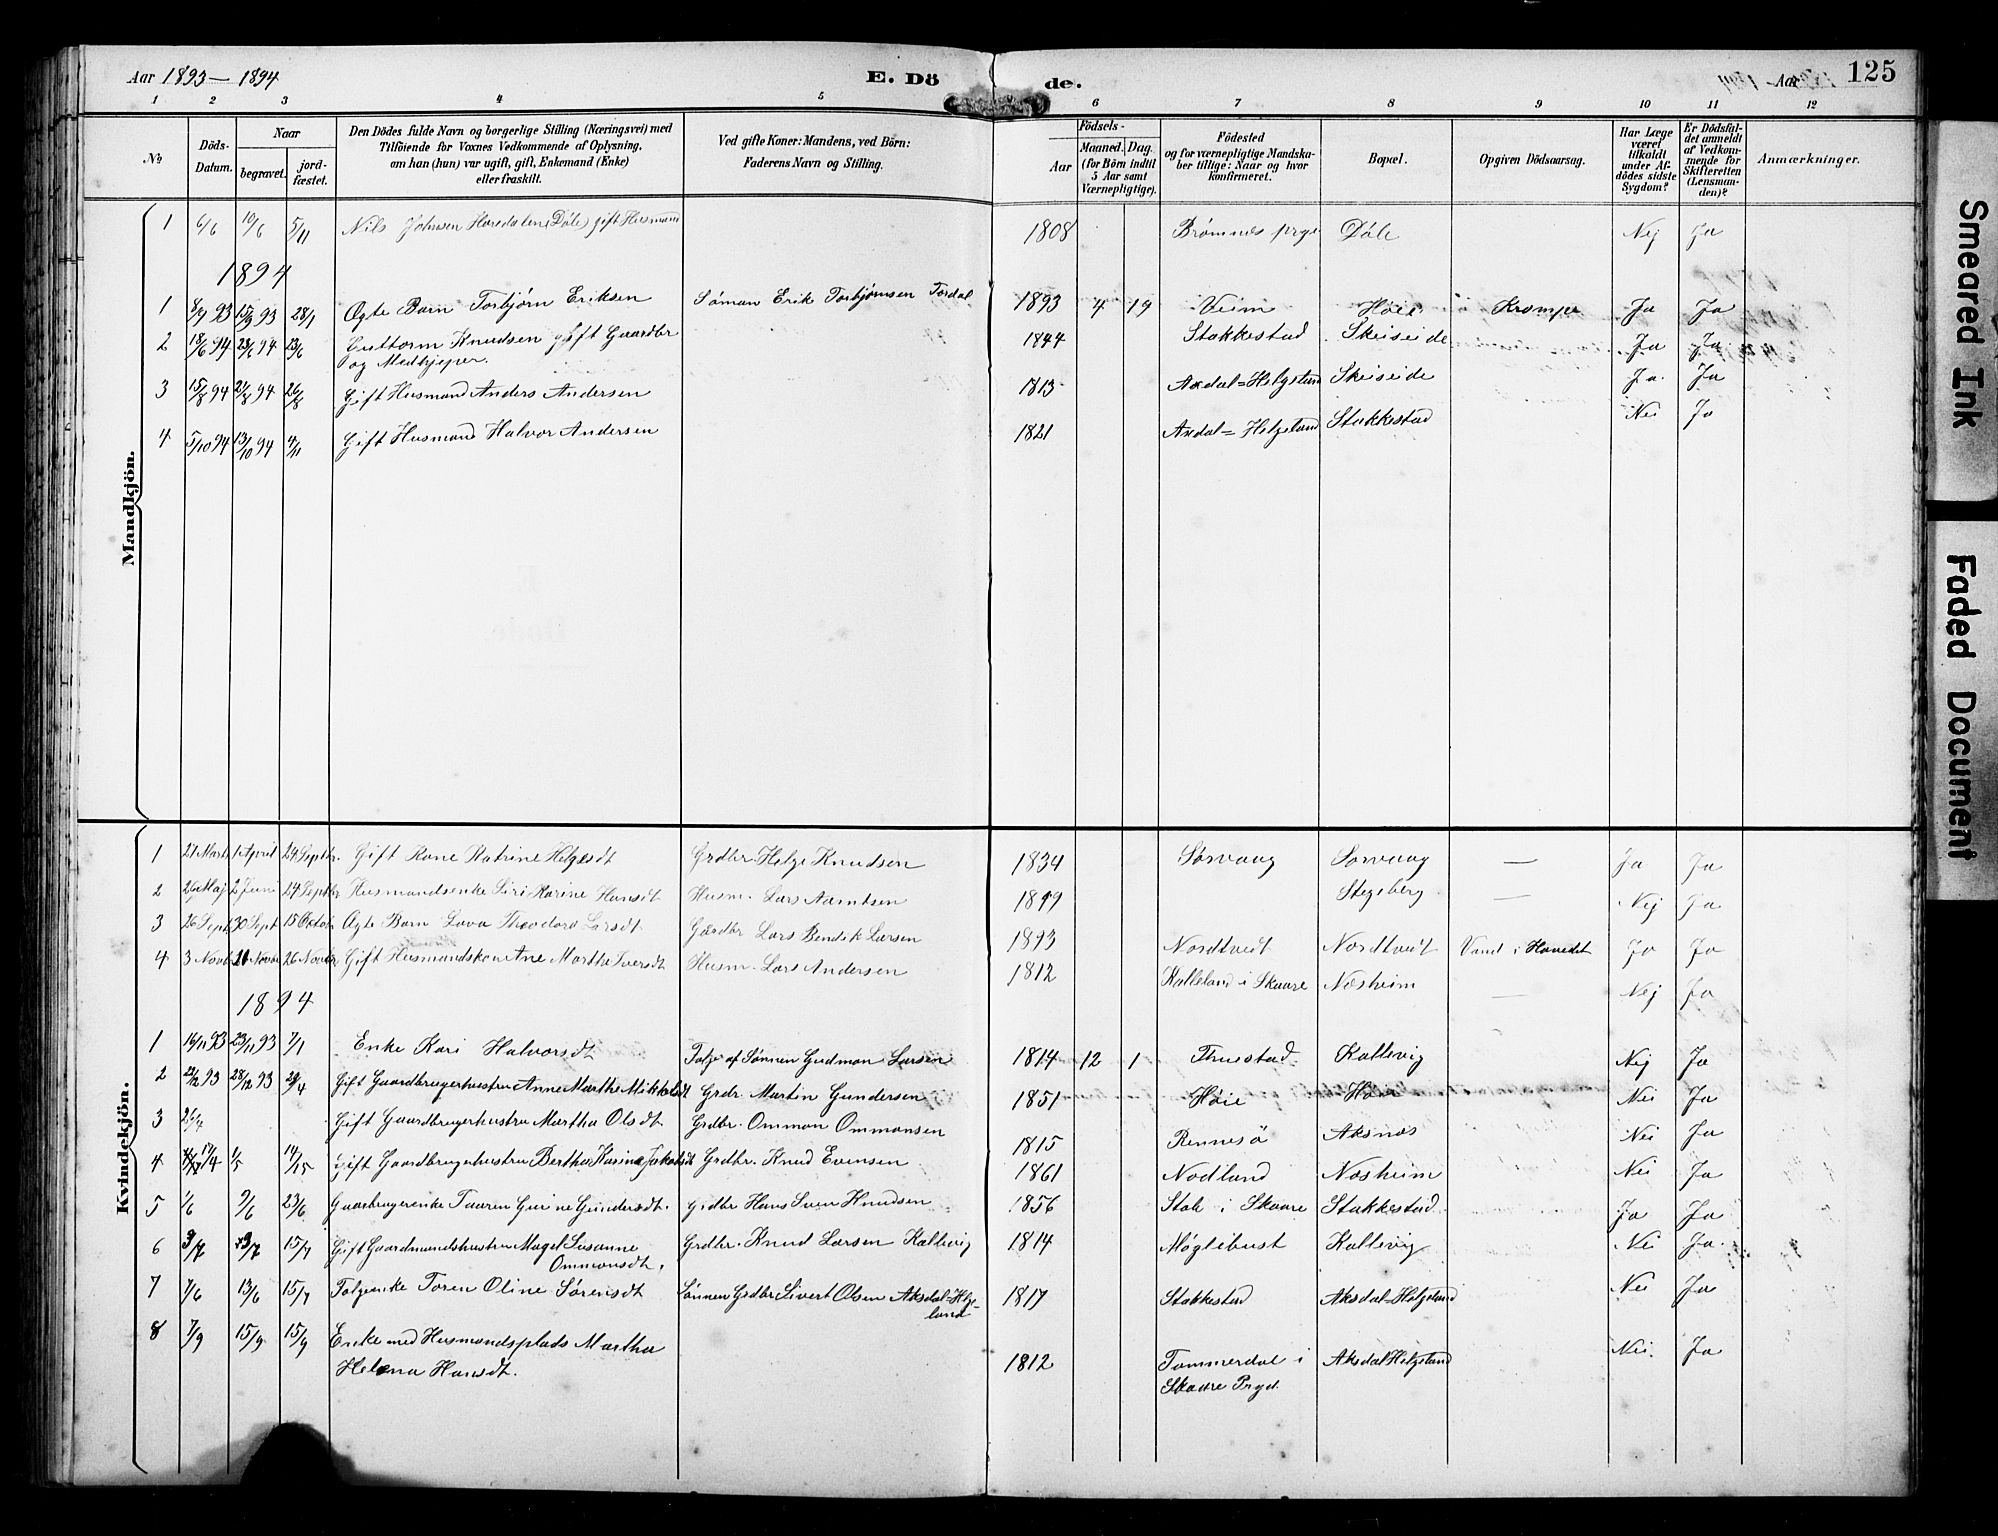 Aar 1893 – 1894 E. Dö de. Aar 125
1 2 3 4 5 6 7 8 9 10 11 12
No. Döds-Datum. Naar begravet. jordfæstet. Den Dödes fulde Navn og borgerlige Stilling (Næringsvei) med Tilföiende for Voxnes Vedkommende af Oplysning, om han (hun) var ugift, gift, Enkemand (Enke) eller fraskilt. Ved gifte Koner: Mandens, ved Börn: Faderens Navn og Stilling. Födsels- Aar Maaned. Dag. (for Börn indtil 5 Aar samt Værnepligtige). Födested og for værnepligtige Mandskaber tillige: Naar og hvor konfirmeret. Bopæl. Opgiven Dödsaarsag. Har Læge været tilkaldt under Afdödes sidste Sygdom? Er Dödsfaldet anmeldt af Vedkommende for Skifteretten (Lensmanden)? Anmærkninger.
Mandkjön.
1 6/6 10/6 5/11 Nils Johnsen (Døle) gift Husmand 1808 Døle Nej Ja
1894
1 8/9 93 15/9 93 28/1 Ægte Barn Torbjørn Eriksen Søman Erik Torbjørnsen Førdal 1893 4 19 Veim Høie Krampe Ja Ja
2 18/6 94 23/6 94 23/6 Guttorm Knudsen gift Gaardbr 1844 Stakkestad Skeiseide Ja Ja
og Medhjelper.
3 15/8 94 21/8 94 26/8 Gift Husmand Anders Andersen 1813 Axdal=Helgeland Skeiseide Ja Ja
4 5/10 94 13/10 94 4/11 Gift Husmand Halvor Andersen 1821 Axdal=Helgeland Stakkestad Nei Ja
Kvindekjön.
1 27 Marts 1 April 24 Septbr. Gift Kone Katrine Helgesdt Grdbr Helge Knudsen 1834 Sørvaag Sørvaag — Ja Ja
2 26 Maj 2 Juni 24 Septbr Husmandsenke Siri Karine Hansdt Husm. Lars Aamtsen 1899 Stegeberg — Nej Ja
3 26 Sept 30 Sept 15 Octobr Ægte Barn Lova Theodora Larsdt Gaardbr Lars Bendik Larsen 1893 Nordtvedt Nordtveit Vand i Hovedet Ja Ja
4 3 Novb 21 Novbr 26 Novbr Gift Husmandskone Ane Martha Iversdt Husm. Lars Andersen 1812 Kalleland i Skaare Næsheim — Nej Ja
1894
1 16/11 93 23/11 93 7/1 Enke Kari Halvorsdt Følge af Sønnen Gudmon Larsen 1814 12 1 Thuestad Kallevig Nej Ja
2 22/12 93 28/12 93 29/4 Gift Gaardbrugerhustru Anne Martha Mikkelsdt Grdr. Martin Gundersen 1851 Høie Høie Nei Ja
3 26/4 Gift Gaardbrugerhustru Martha Olsdt Grdbr. Ommon Ommonsen 1815 Rennesö Aksnæs Nei Ja
4 17/4 1/5 14/15 Gift Gaardbrugerhustru Bertha Karina Jakobsdt Grdbr. Knud Evensen 1861 Nodland Næsheim Nei Ja
5 1/6 9/6 23/6 Gaarbrugerenke Taaren Gurine Gundersdt. Grdbr Hans Sven Knudsen 1856 Stole i Skaare Stakkestad Ja Ja
6 3/7 13/7 15/7 Gift Gaardmandshustru Magel Susanne Grdbr. Knud Larsen Kallevig 1814 Møglebust Kallevig Nei Ja.
Ommonsdt.
7 7/6 13/6 15/7 Følgeenke Toren Oline Sørensdt Sønnen Grdbr Sivert Olsen Aksdal=Helge- 1817 Stakkestad Aksdal=Helgeland Nei Ja
land
8 7/9 15/9 15/9 Enke med Husmandsplads Martha 1812 Tømmerdal i Aksdal Helgeland Nei. Ja
Helena Hansdt. Skaare Prgd.
Smeared Ink
Faded Document